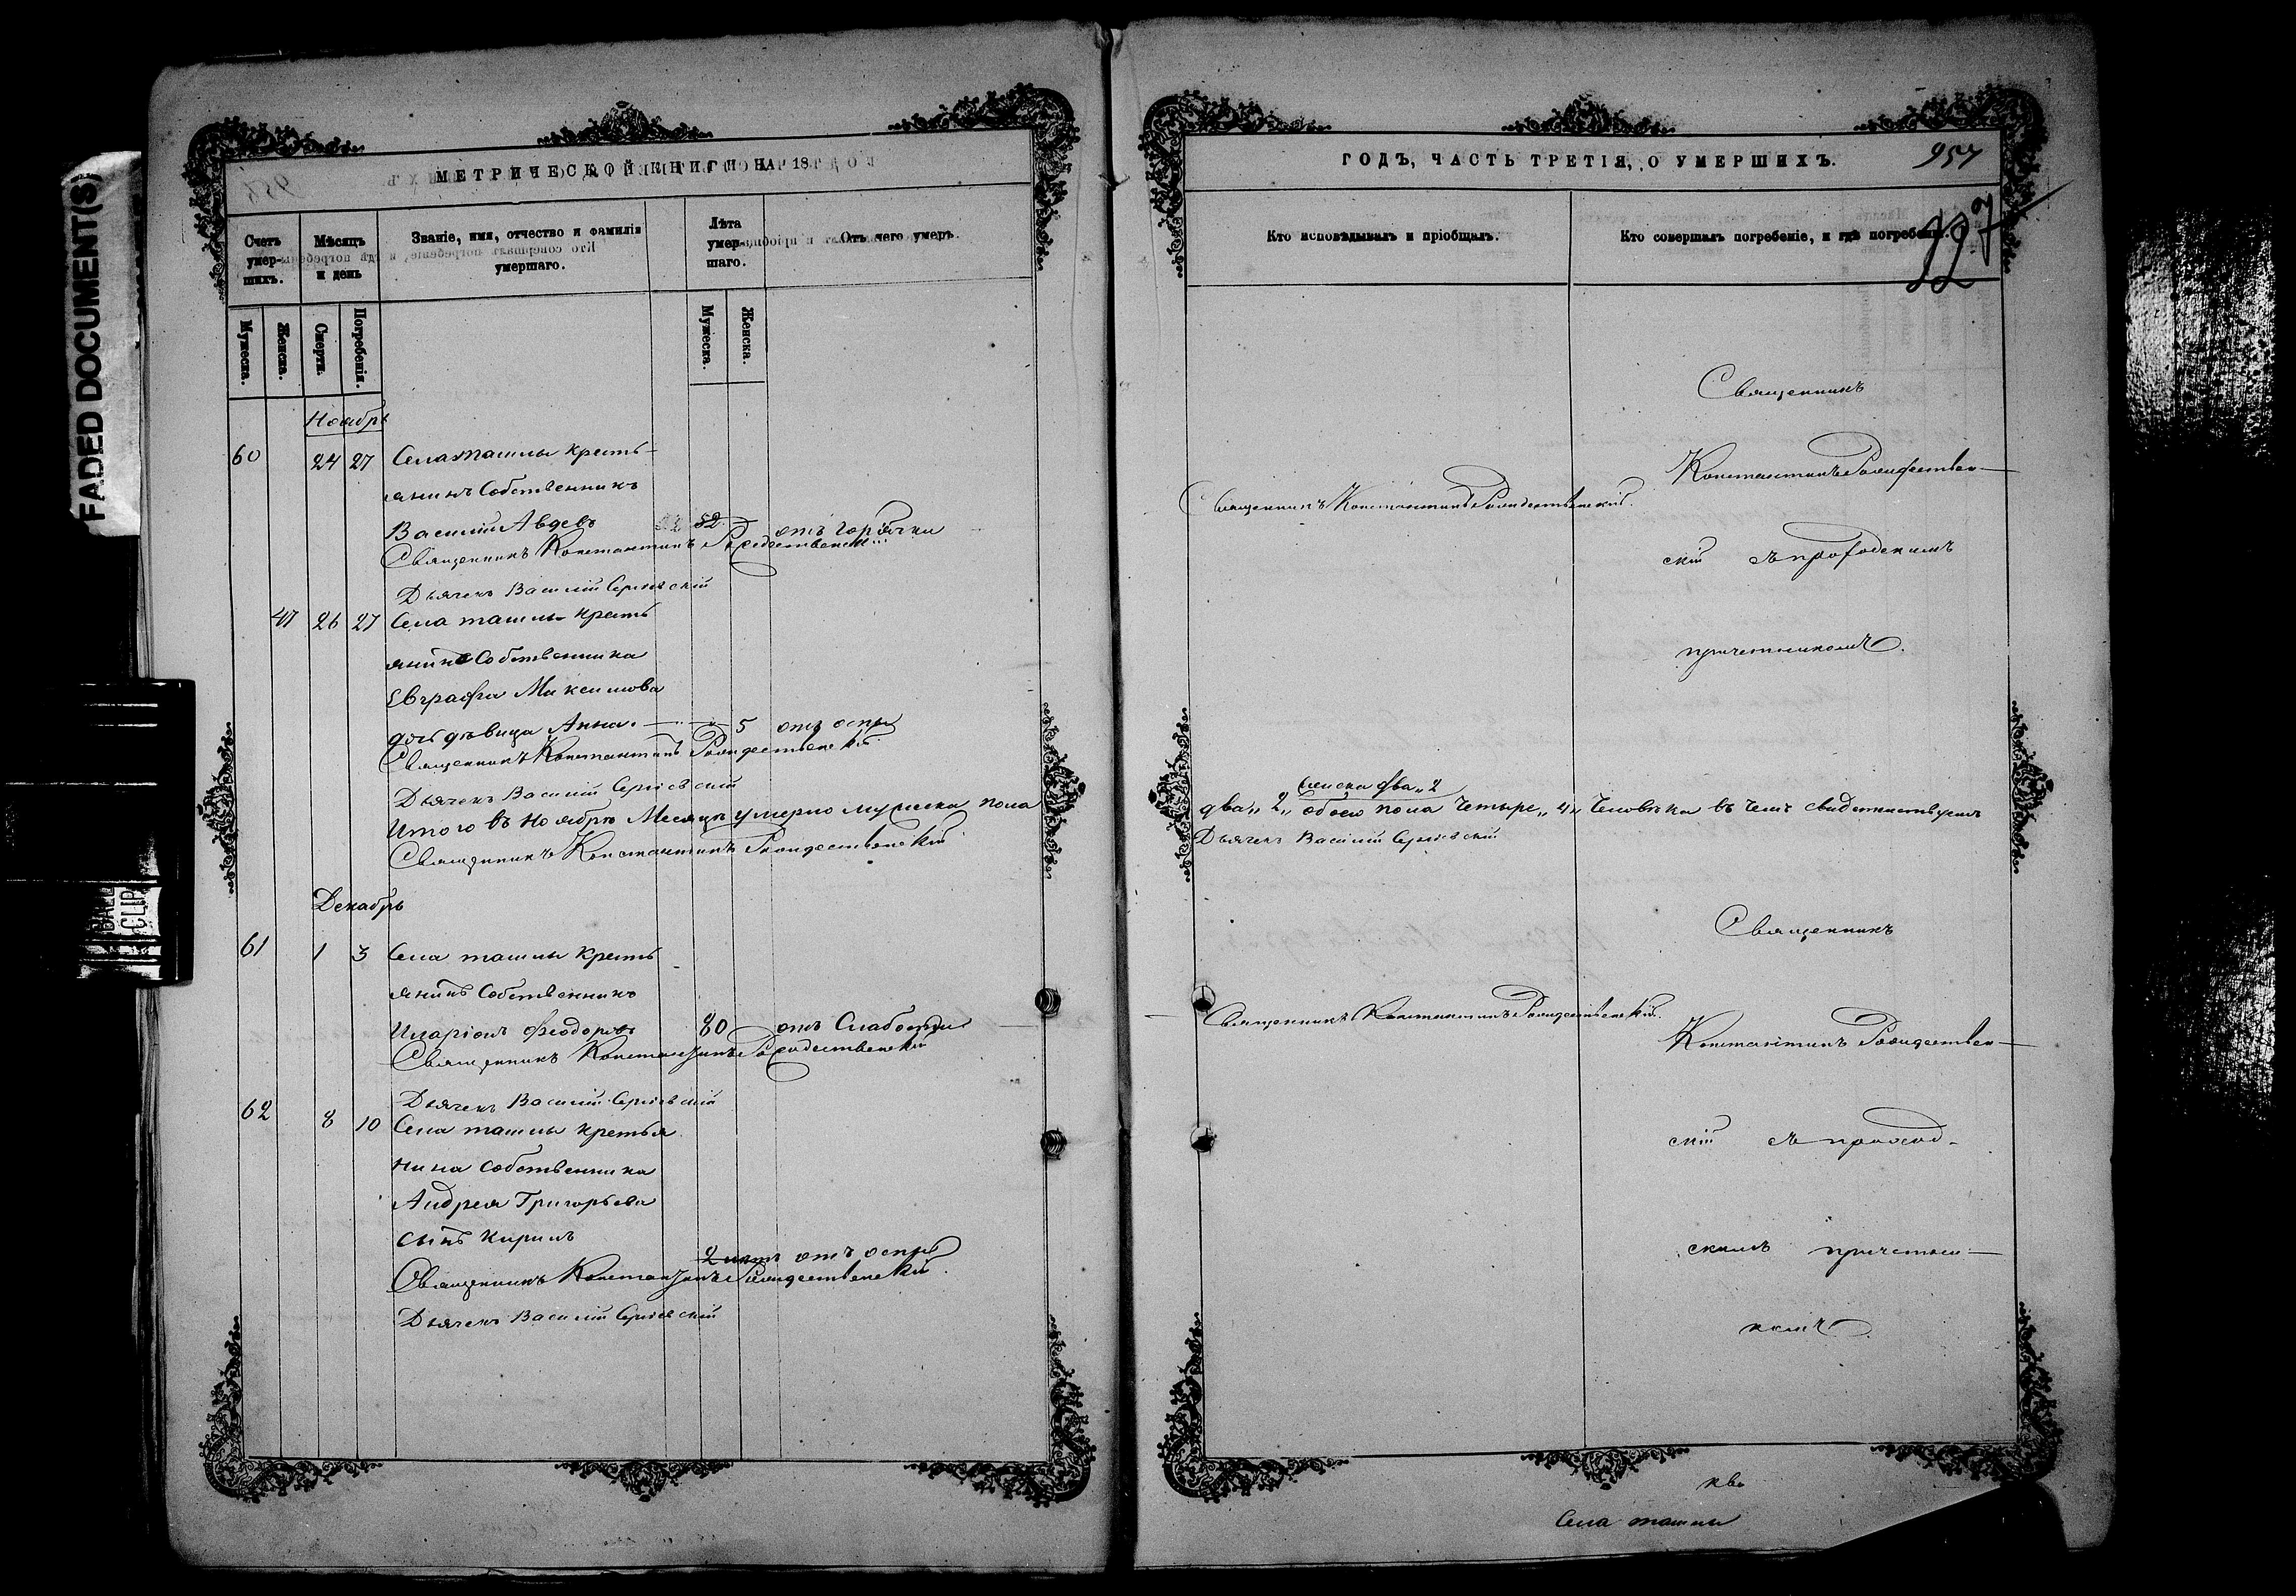 FADED DOCUMENT(S)
МЕТРИЧЕСКОЙ КНИГИ НА 18
Счетъ умер-шихъ.
Мѣсяцъ и день
Званіе, имя, отчество и фамилія умершаго.
Лѣта умер-шаго.
Отъ чего умеръ.
Мужеска.
Женска.
Смерти.
Погребенія.
Мужеска.
Женска.
Ноябрь
60 24 27 Села Ташлы кресть-
янинъ Собственникъ
Василій Авдеевъ 52 отъ горячки
Священникъ Константинъ Рождественскій
Дьячекъ Василій Сергіевскій
47 26 27 Села ташлы кресть
янина Собственника
Евграфа Максимова
дочь девица Анна. 5 отъ оспы
Священникъ Константинъ Рождественскій
Дьячекъ Василій Сергіевскій
Итого въ Ноябрѣ Месяцѣ умерло мужеска пола
Священникъ Константинъ Рождественскій
Декабрь
61 1 3 Села ташлы кресть
янинъ Собственникъ
Иларіонъ Феодоровъ 80 отъ Слабости
Священникъ Константинъ Рождественскій
Дьячекъ Василій Сергіевскій
62 8 10 Села ташлы крестья
нина собственника
Андрея Григорьева
сынъ Кирилъ
2 отъ оспы
Священникъ Константинъ Рождественскій
Дьячекъ Василій Сергіевскій
CLIP
ГОДЪ, ЧАСТЬ ТРЕТІЯ, О УМЕРШИХЪ.
957
997
Кто исповѣдывалъ и пріобщалъ.
Кто совершалъ погребеніе, и гдѣ погребены.
Священникъ
Константинъ Рождествен-
Священникъ Константинъ Рождественскій.
скій съ приходскимъ
причетникомъ.
женска два „2
два „2„ обоего пола четыре „4„ человѣка въ чемъ свидетельствуемъ
Дьячекъ Василій Сергіевскій
Священникъ
Священникъ Константинъ Рождественскій.
Константинъ Рождествен-
скій съ приход-
скимъ причетни-
комъ.
Села ташлы